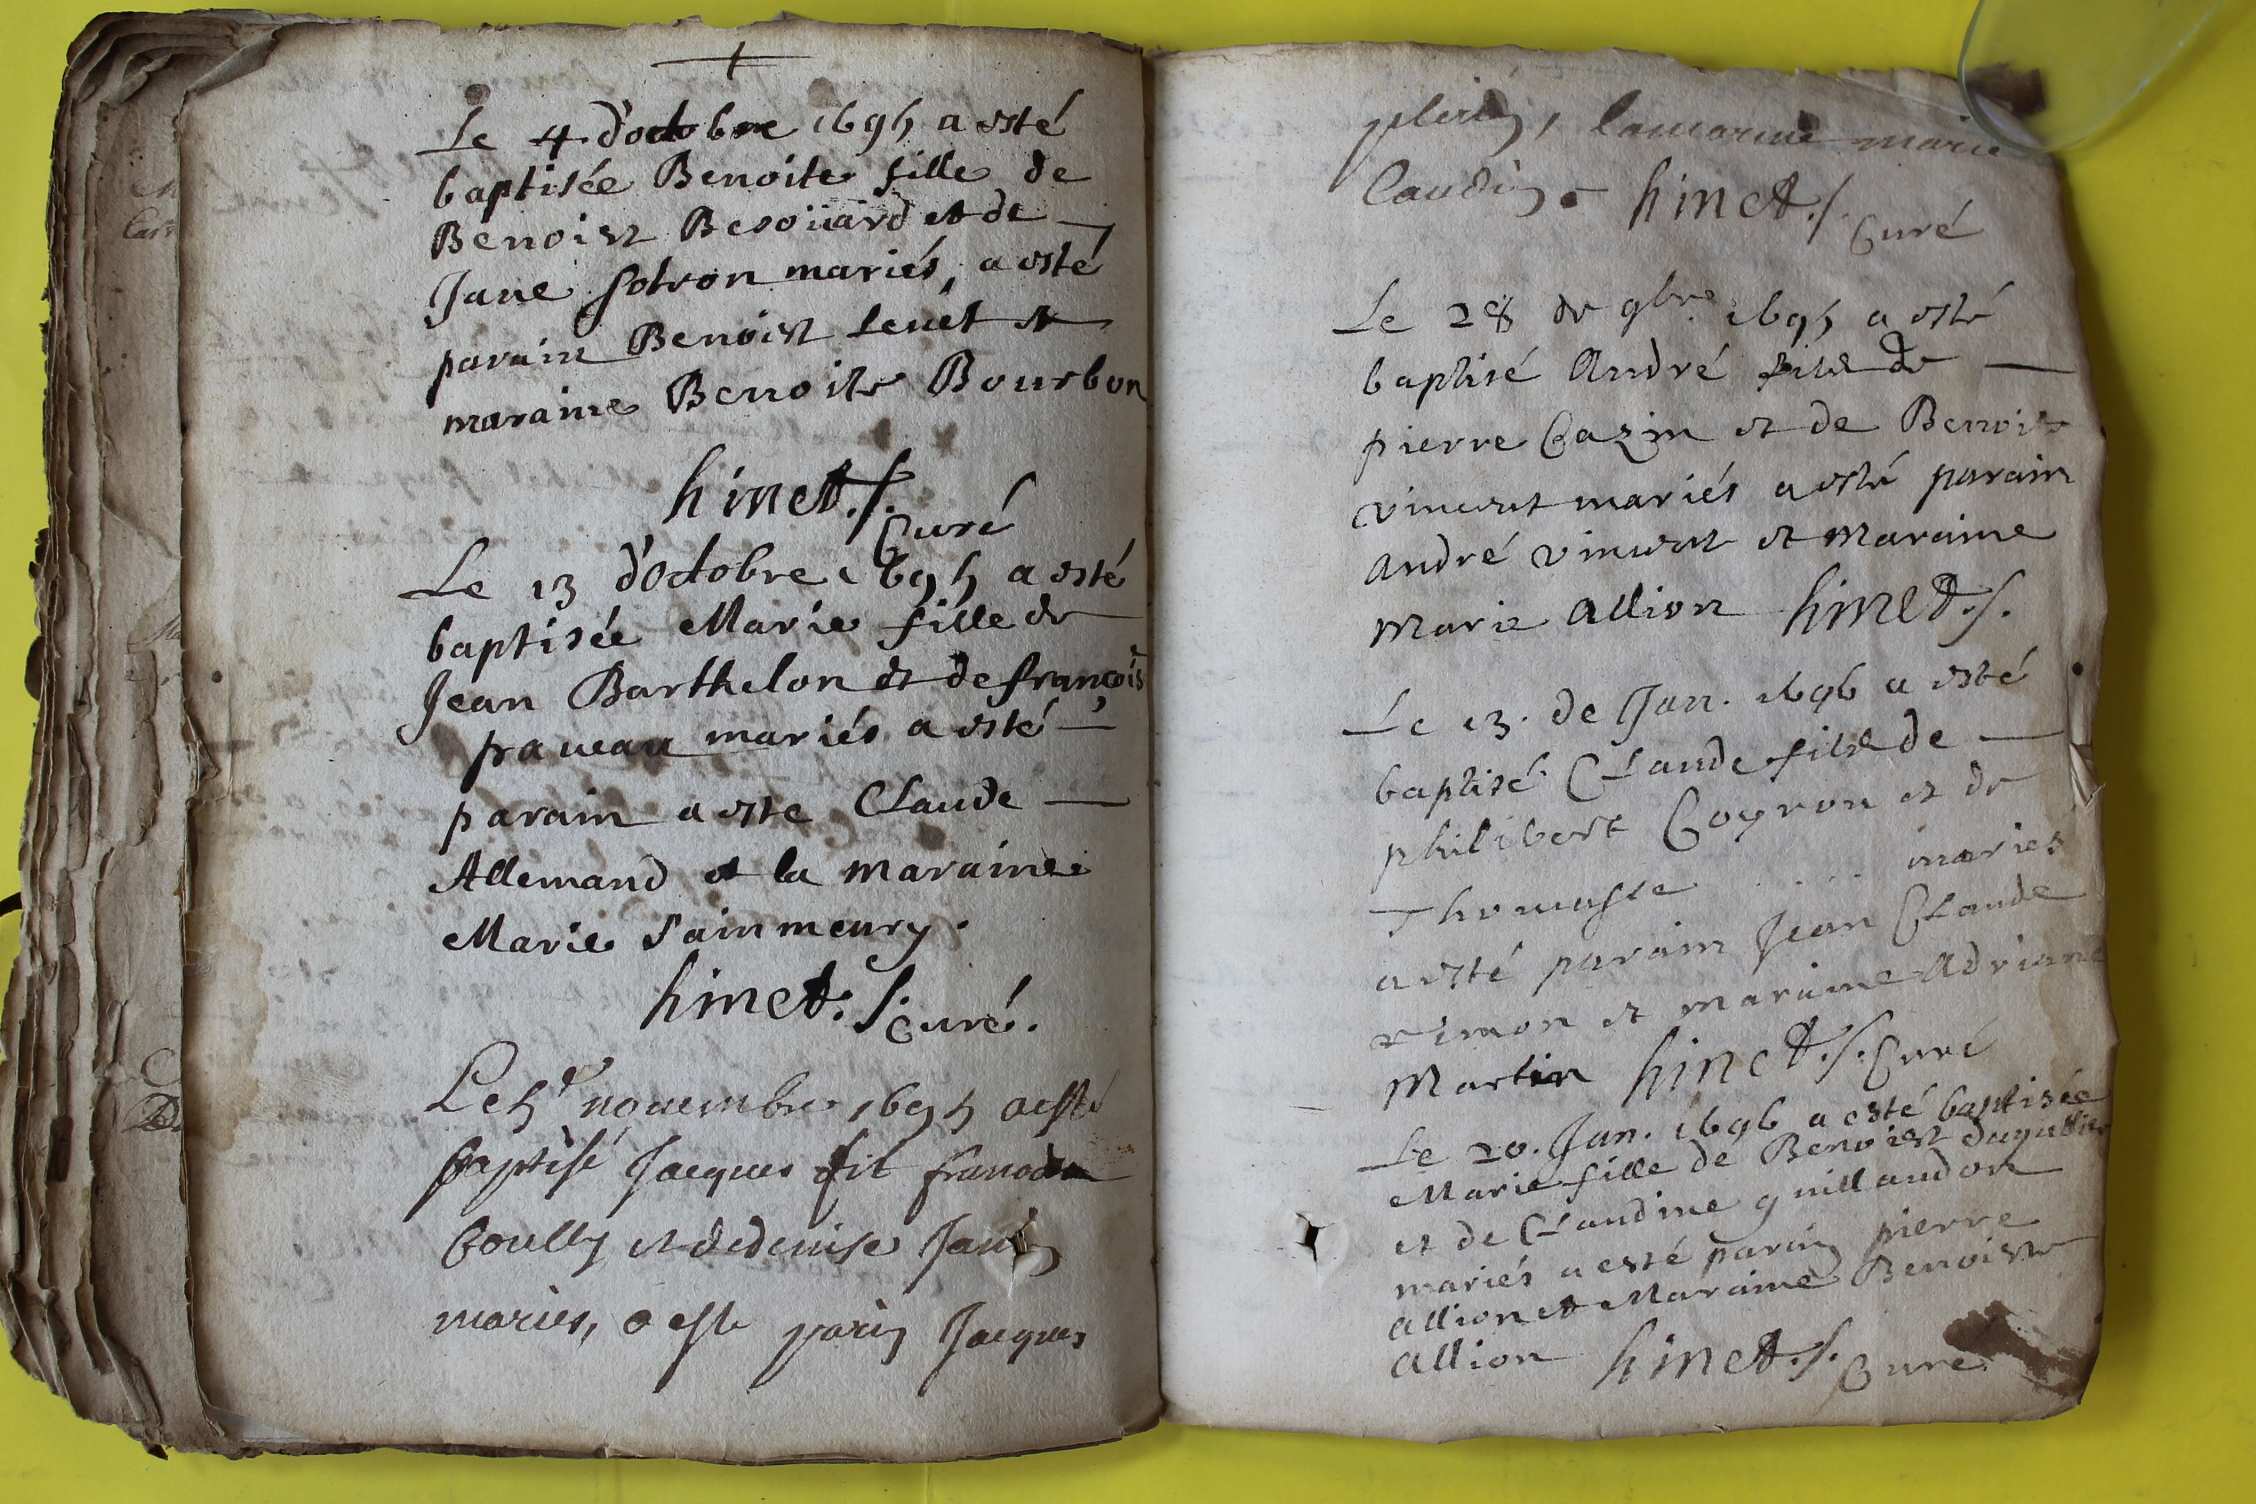 Le 4 d'octobre 1695 a esté
baptisée Benoite fille de
Benoist Besoüard et de
Jane sotron mariés, a esté
parain Benoist Levet et
maraine Benoite Bourbon
hinet. s. Curé
Le 13 d'octobre 1695 a esté
baptisée Marie fille de
Jean Barthelon et de françoise
praveau mariés a esté
parain a este Claude
Allemand et la maraine
Marie Sainmeury.
hinet. s. curé.
Le 5e novembre 1695 a esté
baptisé Jacques fil
et de denise
maries, a este parin Jacques
la marine marie
Claudin hinet. s. Curé
Le 28 de 9bre 1695 a esté
baptisé André fils de
pierre Cazin et de Benoite
vincent mariés a esté parain
andré vincent et maraine
marie allion hinet. s.
Le 13. de Jan. 1696 a esté
baptisé Claude fils de
philibert Coyron et de
Thomasse .... mariés
a esté parain Jean Claude
rimon et maraine Adriane
Martin hinet. s. Curé
Le 20. Jan. 1696 a esté baptisée
Marie fille de Benoist
et de Claudine guillaudon
mariés a esté parain pierre
allion et Maraine Benoiste
allion hinet. s. Curé.